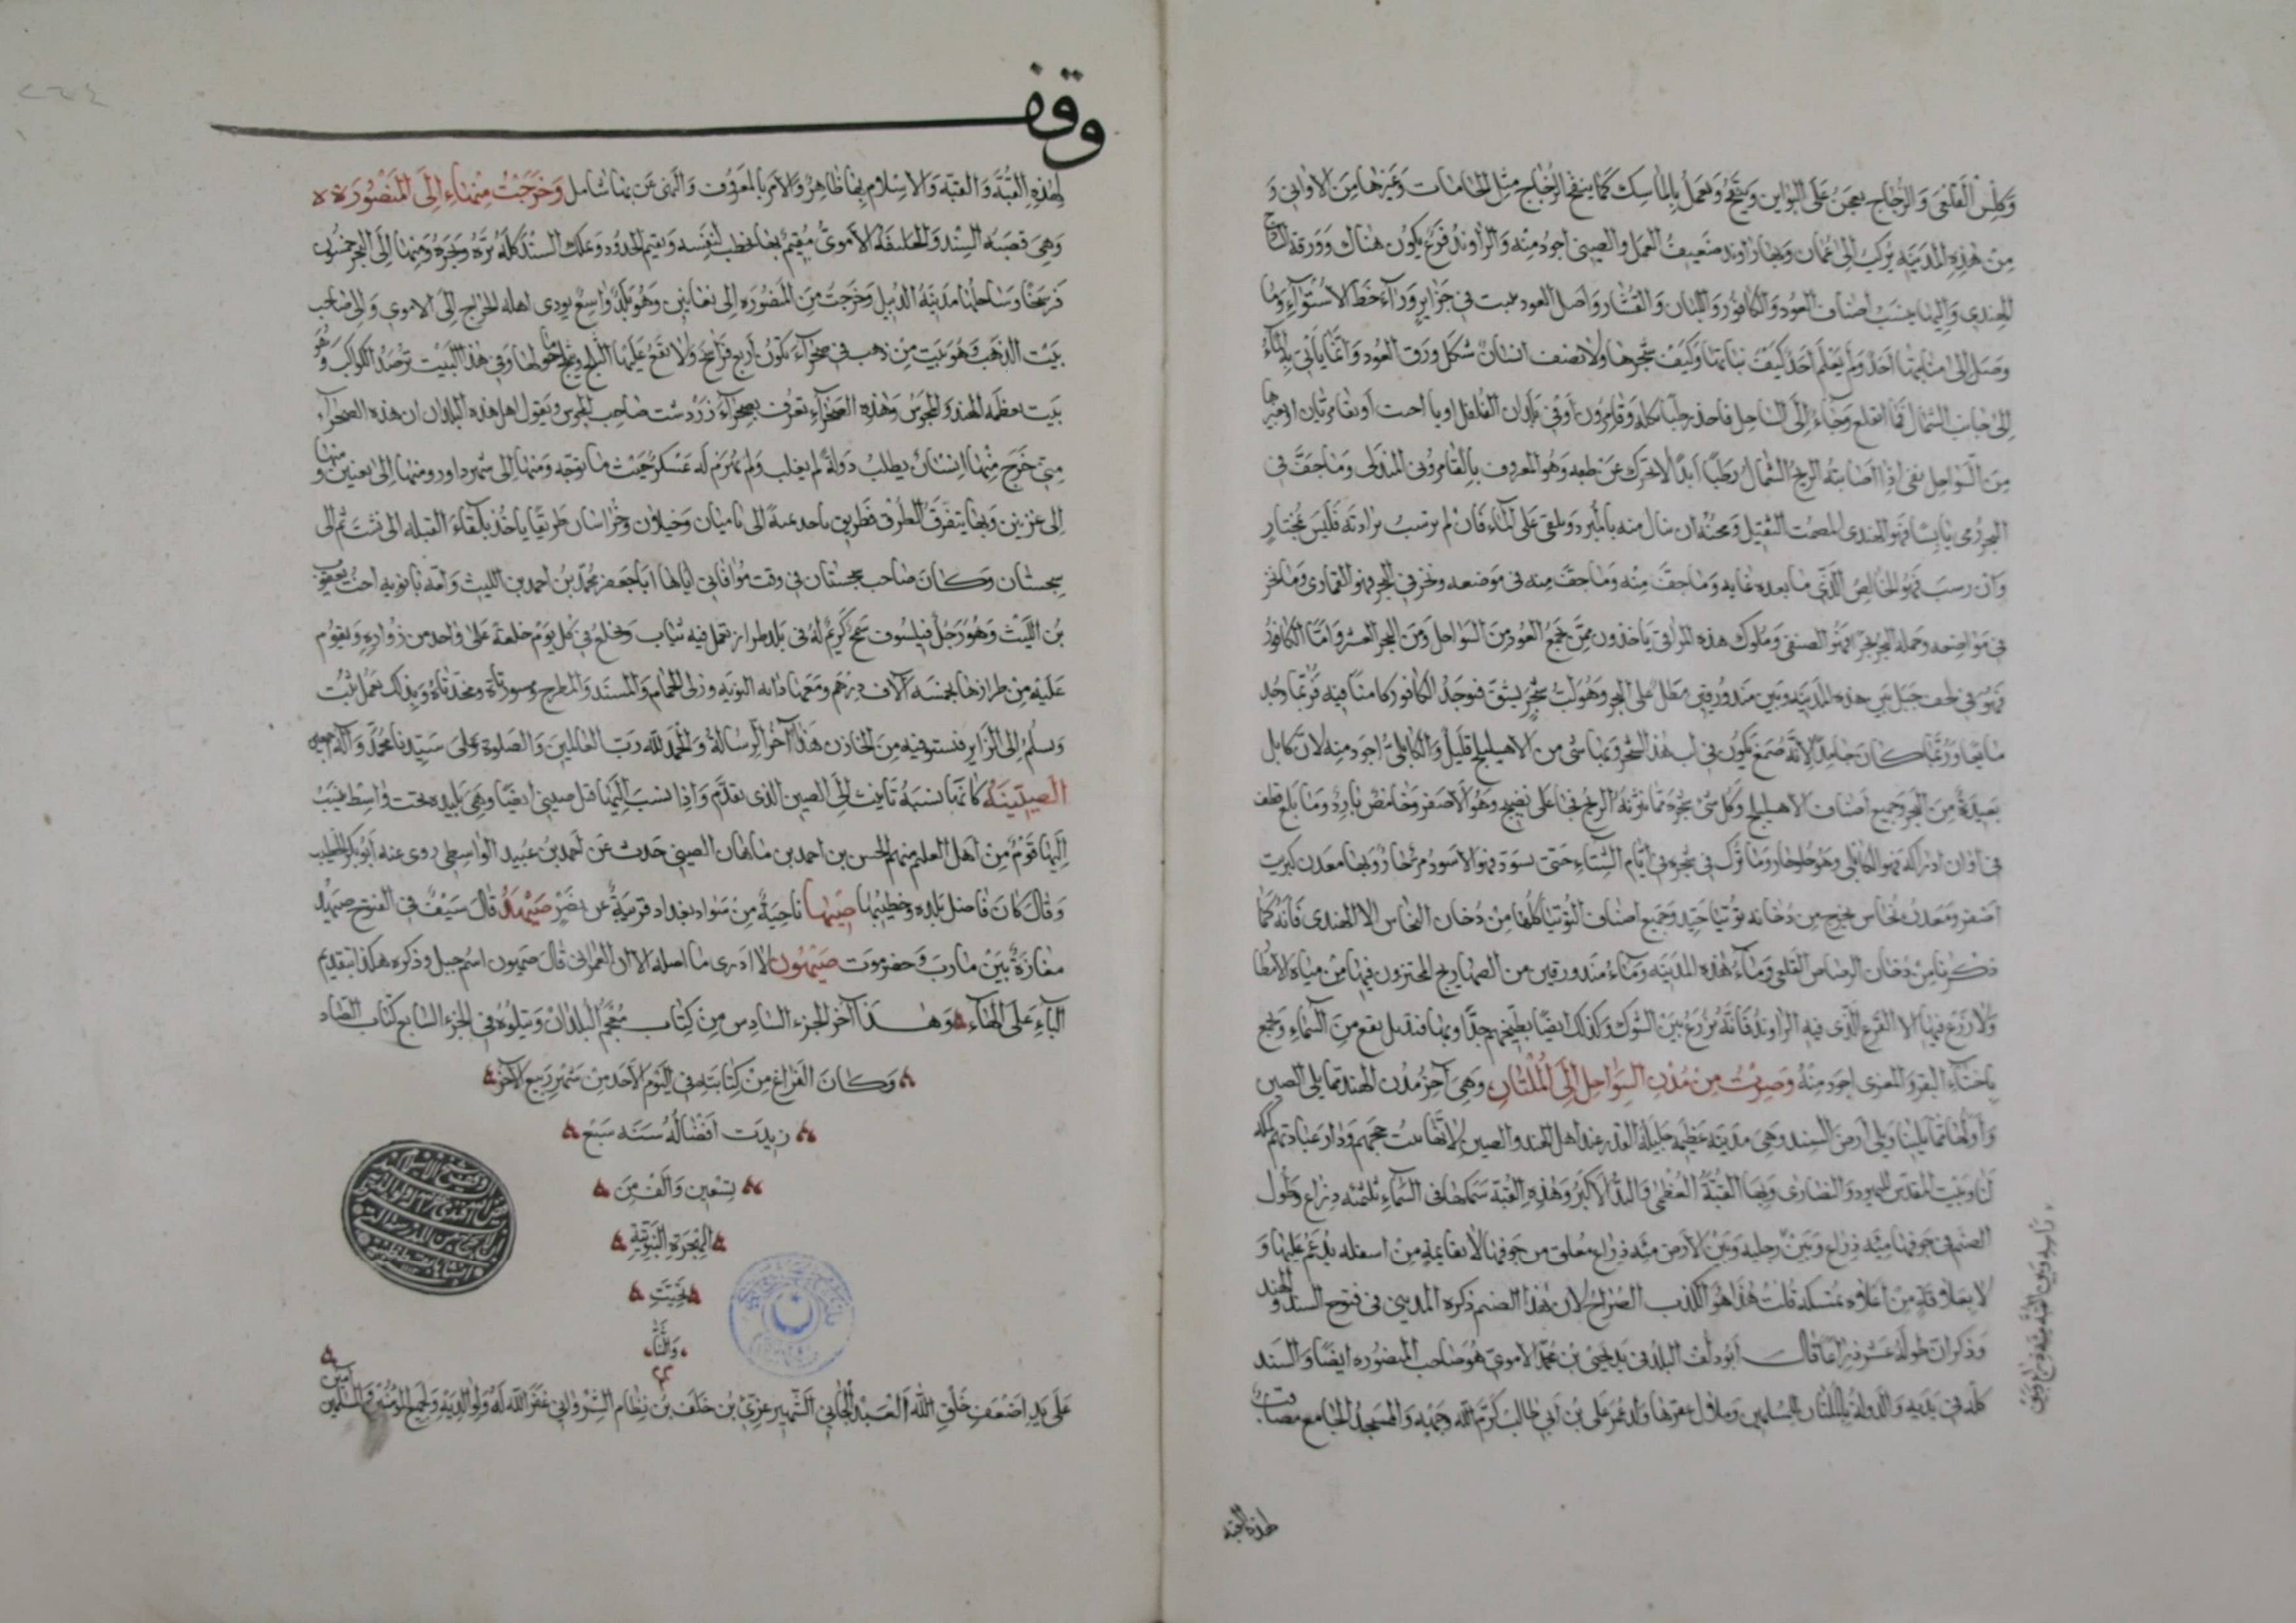 وكلس القلعى والزجاج يعجن على البواين وينفخ ويعمل بالماسك كما ينفخ الزجاج مثل الجامات وغيرها من الاوانى و
من هذه المدينة يركب الى عمان وبها راوند ضعيف العمل والصينى اجود منه والراوند قرع يكون هناك وورقه الساذج
الهندى واليها ينسب اصناف العود والكافور واللبان والقشار واصل العود نبت فى جزاير وراء خط الاستواء وما
وصل الى منابتها احد ولم يعلم احد كيف نباتها وكيف شجرها ولا يصف انسان شكل ورق العود وانما ياتى به الماء
الى جانب الشمال فما انقلع وجاء الى الساحل فاخذ رطبا بكله وقامرون او فى بلدان الفلفل او بالصنف او بقمار ثان او غيرها
من السواحل بقى اذا اصابته الريح الشمال رطبا ابدا لا يتحرك عن طبعه وهو المعروف بالقامرونى المندلى وما جف فى
البحر ورمى يابسا فهو الهندى المصمت الثقيل ومحنته ان ينال منه بالمبرد ويلقى على الماء فان لم يرسب برادته فليس بمختار
وان رسب فهو الخالص الذى ما بعده غاية وما جف منه وما جف منه فى موضعه ونخر فى البحر فهو القمارى وما نخر
فى مواضعه وحمله البحر نخرا فهو الصنفى وملوك هذه المراقى ياخذون ممن يجمع العود من السواحل ومن البحر العشر واما الكافور
فهو فى لحف جبل بين هذه المدينة وبين مندورقين مطل على البحر وهو لب شجر يشق فيوجد الكافور كامنا فيه فربما وجد
مايعا وربما كان جامدا لانه صمغ يكون فى لب هذا الشجر وبها شى من الاهليلج قليل والكابلى اجود منه لان كابل
بعيدة من البحر وجميع اصناف الاهليلج وكل شى شجره مما نثرته الريح فجا على نضيج وهو الاصفر وحامض بارد وما بلغ قطف
فى اوان ادراكه فهو الكابلى وهو حلو حار وما ترك فى شجره فى ايام الشتاء حتى يسود فهو الاسود مر حار وبها معدن كبريت
اصفر ومعدن نحاس يخرج من دخانه توتيا جيد وجميع اصناف التوتيا كلها من دخان النحاس الا الهندى فانه كما
ذكرنا من دخان الرصاص القلعى وماء هذه المدينة وماء مندورقين من الصهاريج المختزون فيها من مياه الامطا
ولا زرع فيها الا القرع الذى فيه الراوند فانه يزرع بين الشوك وكذلك ايضا بطيخهم جدا وبها قنبيل يقع من السماء ويجمع
باخثاء البقر والمعزى اجود منه وصرت من مدن السواحل الى الملتان وهى آخر مدن الهند مما يلى الصين
واولها مما يلينا ويلى ارض السند وهى مدينة عظيمة جليلة القدر عند اهل الهند والصين لانها بيت حجهم ودار عبادتهم مكة
لنا وبيت المقدس لليهود والنصارى وبها القبة العظمى والبد الاكبر وهذه القبة سمكها فى السماء ثلثمئة ذراع وطول
الصنم فى جوفها مئة ذراع وبين رجليه وبين الارض مئة ذراع معلق من جوفها لا بقايمة من اسفله يدعم عليها و
لا بعلاقة من اعلاه تمسكه قلت هذا هو الكذب الصراح لان هذا الصنم ذكره المدينى فى فتوح السند والهند
وذكر ان طوله عشرون ذراعا قال ابو دلف البلد فى يد يحيى بن محمد الاموى هو صاحب المنصوره ايضا والسند
كله فى يديه والدولة بالملتان للمسلمين وملاك عقرها ولد عمر على بن ابى طالب كرم الله وجهه والمسجد الجامع مصاقب
لهذه القبة
وقف
لهذه القبة والقبة والاسلام بها ظاهر والامر بالمعروف والنهى عن بها شامل وخرجت منها الى المنصورة
وهى قصبة السند والخليفة الاموى مقيم بها يخطب لنفسه ويقيم الحدود ويملك السند كله بره وبحره ومنها الى البحر خمسون
فرسخا وساحلها مدينة الديبل وخرجت من المنصوره الى بغانين وهو بلد واسع يودى اهله الخراج الى الاموى والى صاحب
بيت الذهب وهو بيت من ذهب فى صحراء يكون اربع فراسخ ولا يقع عليها الثلج ويثلج ما حولها وفى هذا البيت ترصد الكواكب وهو
بيت تعظمه الهند والمجوس وهذه الصحراء تعرف بصحراء زردشت صاحب المجوس ويقول اهل هذه البلدان ان هذه الصحراء
متى خرج منها انسان يطلب دولة لم يغلب ولم يهزم له عسكر حيث ما توجه ومنها الى شهر داور ومنها الى بغنين ومنها
الى غزنين وبها يتفرق الطرق فطريق ياخذ يمنة الى باميان وختلان وخراسان طريقا ياخذ تلقاء القبله الى بست ثم الى
سجستان وكان صاحب سجستان فى وقت موافاتى اياها ابا جعفر محمد بن احمد بن الليث وامه بانويه اخت يعقوب
بن الليث وهو رجل فيلسوف سمح كريم له فى بلده طراز تعمل فيه ثياب ويخلع فى كل يوم خلعة على واحد من زواره ويقوم
عليه من طرازها بخمسة آلاف درهم ومعها دابة النوبة وزلى الحمام والمسند والمطرح ومسورتاه ومخدتاه وبذلك يعمل ثبت
ويسلم الى الزاير فيستوفيه من الخازن هذا آخر الرسالة والحمد لله رب العالمين والصلوة على سيدنا محمد وآله اجمعين
الصينية كانها نسبة تانيث الى الصين الذى تقدم واذا نسب اليها قيل صينى ايضا وهى بليده تحت واسط ينسب
اليها قوم من اهل العلم منهم الحسن بن احمد بن ماهان الصينى حدث عن احمد بن عبيد الواسطى روى عنه ابو بكر الخطيب
وقال كان قاضى بلده وخطيبها صيهبا ناحية من سواد بغداد قريبة عن نصر صيهد قال سيف فى الفتوح صيهد
مفازة بين مارب وحضرموت صيهون لا ادرى ما اصله الا ان العمرانى قال صيهون اسم جبل وذكره هكذا بتقديم
الياء على الهاء وهذا آخر الجزء السادس من كتاب معجم البلدان ويتلوه فى الجزء السابع كتاب الضاد
وكان الفراغ من كتابته فى اليوم الاحد من شهر ربيع الآخر
زيدت افضاله سنه سبع
تسعين والف من
الهجرة النبوية
على يد اضعف خلق الله العبد الجانى الشهير عزتى بن خلف بن نظام الشروانى غفر الله له ولوالديه ولجميع المؤمنين والمسلمين
آمين